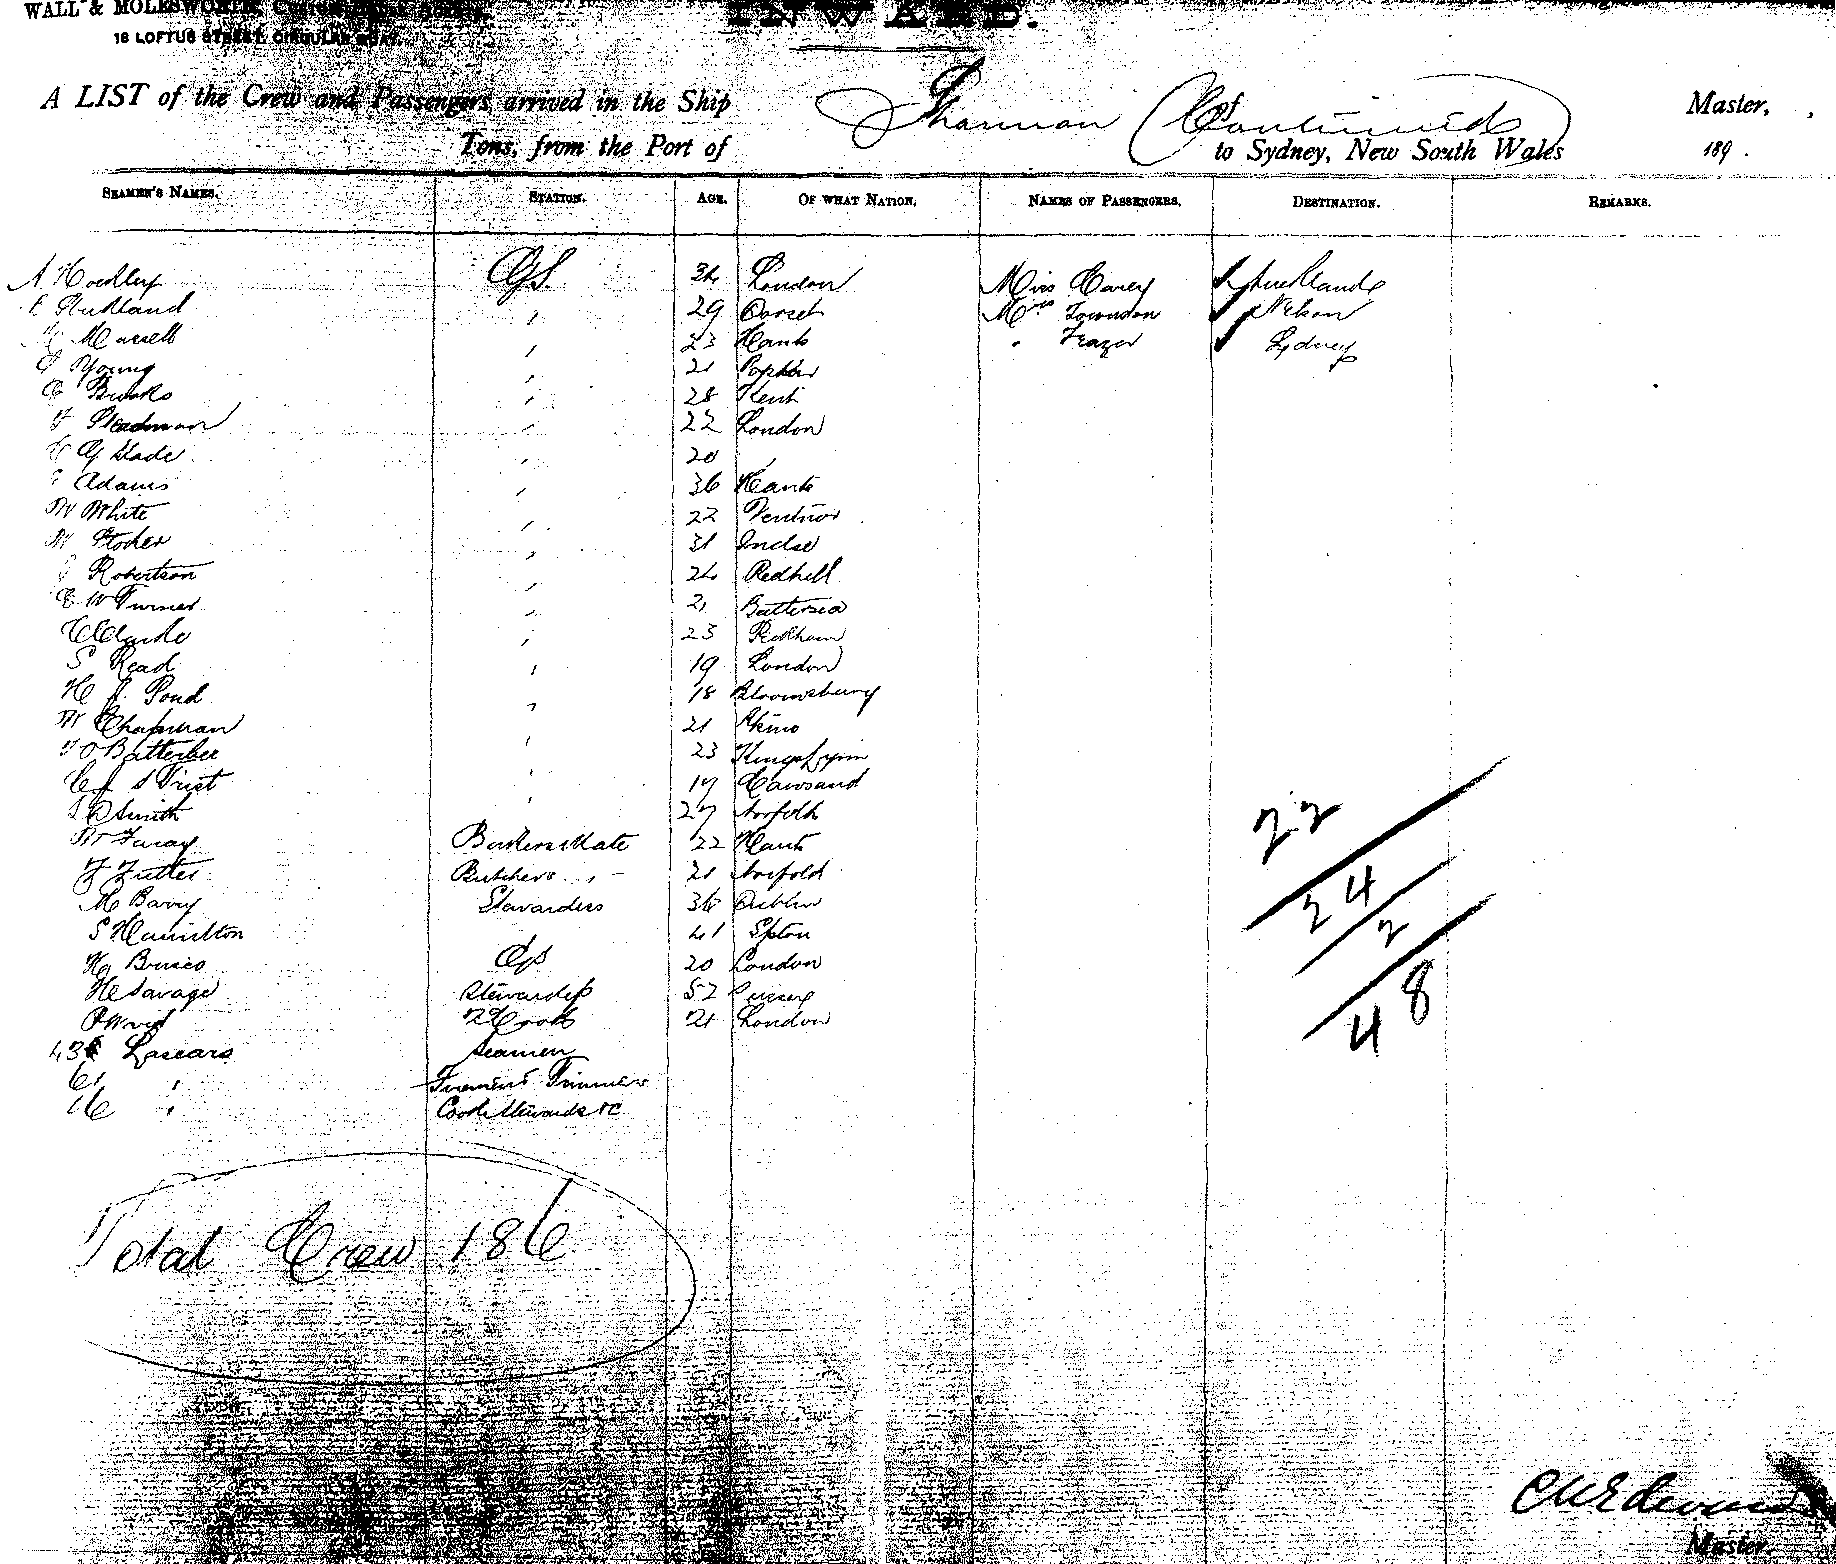 WALL & MOLESWORTH,
16 LOFTUS STREET, CIRCULAR QUAY.
INWARD.
A LIST of the Crew and Passengers arrived in the Ship Shannon (Continued) of Master,
Tons, from the Port of to Sydney, New South Wales 189 .
SEAMEN'S NAMES. STATION. AGE. OF WHAT NATION. NAMES OF PASSENGERS. DESTINATION. REMARKS.
A Hockley GS. 34 London Miss Carey Auckland
Stickland " 29 Dorset Mrs Townson Nelson
Mussell " 23 Hants " Frazer Sydney
Young " 21 Poplar
C Brooks " 28 Kent
F Steadman " 22 London
G Slade " 20 "
Adams " 36 Hants
W White " 22 Ventnor
W Stoker " 31
J Robertson " 24 Redhill
E W Turner " 21 Battersea
C Clarke " 23 Peckham
S Read " 19 London
H J. Pond " 18 Bloomsbury
W Chapman " 21
F O Batterbee " 23 Kings Lynn
C J S Trist " 19 Cawsand
Smith " 27 Norfolk
W Bakers Mate 22 Hants
F Futter Butchers " 21 Norfolk
M Barry Stewardess 36 Dublin
S Hamilton 41
GS 20 London
H Savage Stewardess 52 Surrey
Cook 21 London
43 Lascars Seamen
61 " Firemen & Trimmers
16 " Cooks Stewards &c
22
24
2
48
Total Crew 186
Master.